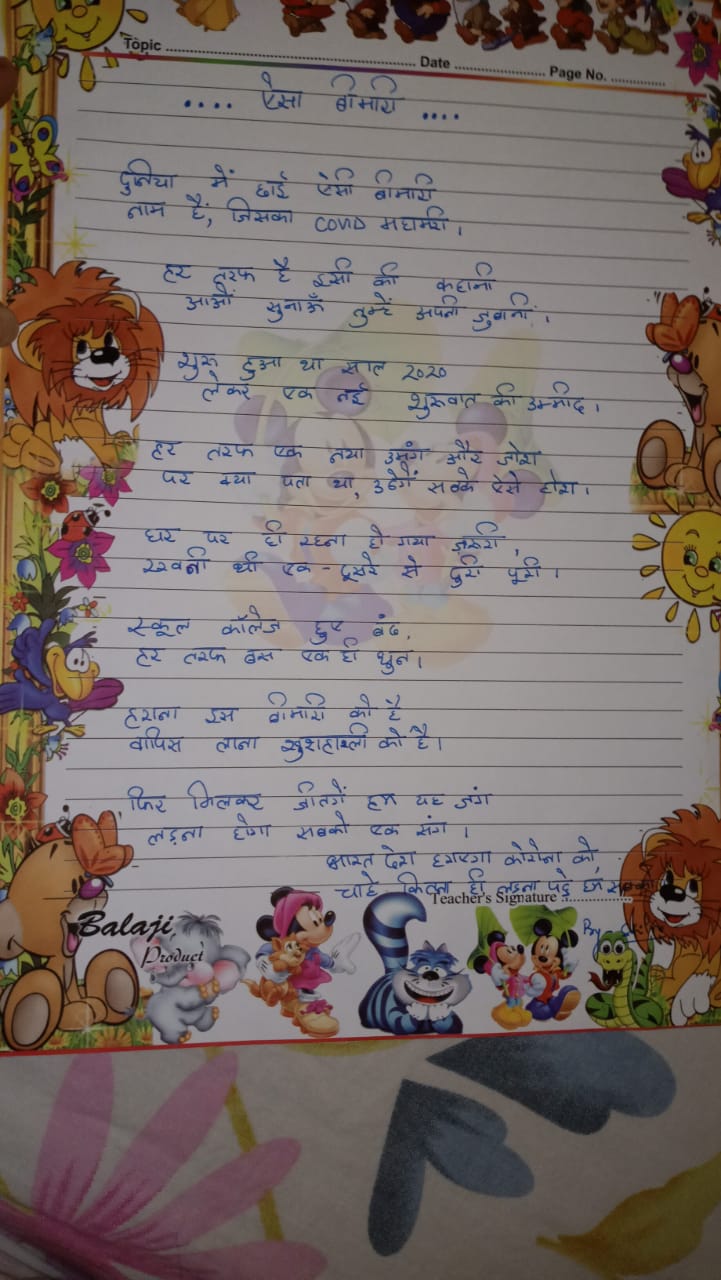 Topic ........ Date ........ Page No. ........
.... ऐसा बीमारी ....
दुनिया में छाई ऐसी बीमारी
नाम हैं, जिसका COVID महामरी।
हर तरफ है इसी की कहानी
आओं सुनाऊँ तुम्हें अपनी जुबानी।
शुरू हुआ था साल 2020
लेकर एक नई शुरुवात की उम्मीद।
हर तरफ एक नया उमंग और जोश
पर क्या पता था, उडेगें सबके ऐसे होश।
घर पर ही रहना हो गया जरुरी,
रखनी थी एक-दूसरे से दुरी पूरी।
स्कूल कॉलेज हुए बंद,
हर तरफ बस एक ही धुन।
हराना इस बीमारी को है
वापिस लाना खुशहाली को है।
फिर मिलकर जीतगें हम यह जंग
लड़ना होगा सबको एक संग।
भारत देश हराएगा कोरोना को,
चाहे कितना ही लड़ना पड़े हम सबको
Teacher's Signature ........
By
Balaji
Product